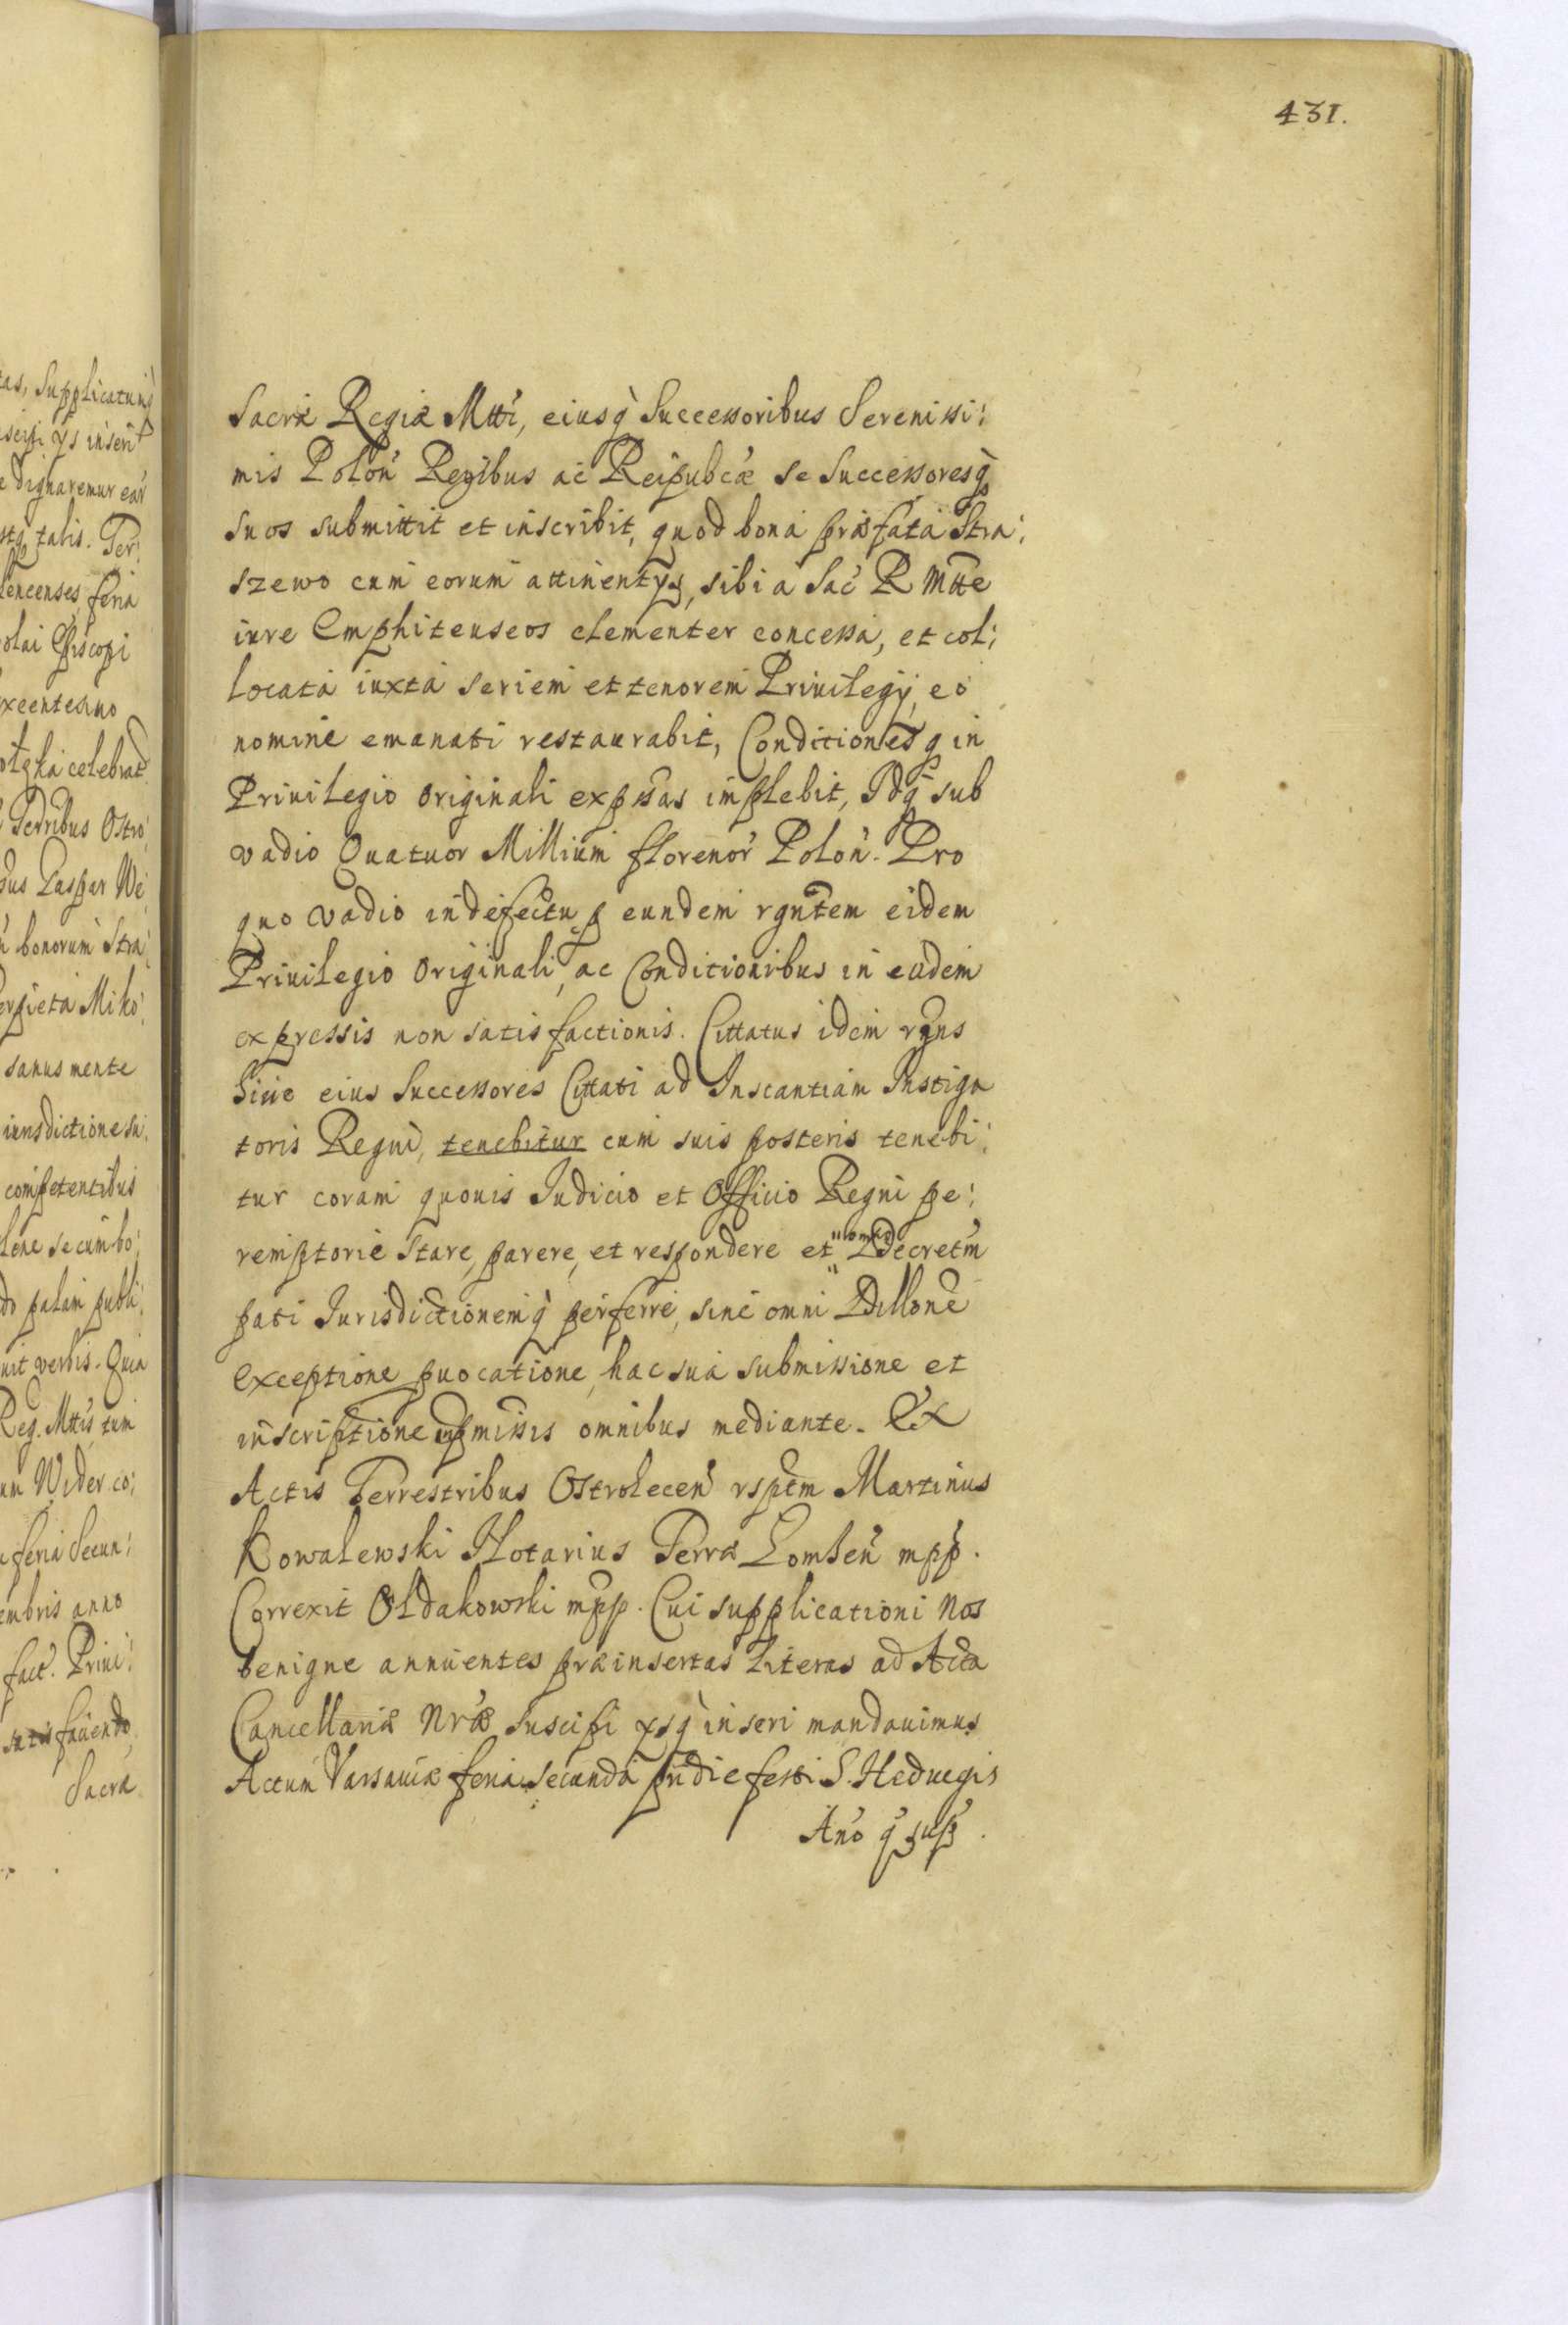 431.
Sacræ Regiæ Mtti, eiusq̀ Successoribus Serenissi:
mis Polon̄ Regibus ac Reipubcæ se Successoresq̀
suos submittit et inscribit, quod bona præfata Stra:
szewo cum eorum attinentys, sibi à Sac̄ R Mtte
iure Emphiteuseos clementer concessa, et col:
locata iuxta seriem et tenorem Priuilegij, eo
nomine emanati restaurabit, Conditiones q̀ in
Priuilegio originali expssas implebit, Idq̀ sub
vadio Quatuor Millium florenor̄ Polon̄. Pro
quo vadio in defectu p eundem rgntem eidem
Priuilegio Originali, ac Conditionibus in eodem
expressis non satisfactionis. Cittatus idem rgns
Siue eius Successores Cittati ad Instantiam Instiga
toris Regni, tenebitur cum suis posteris tenebi:
tur coram quouis Iudicio et Officio Regni pe:
remptorie Stare, parere, et respondere et Decretm̄
pati Iurisdictionemq̀ perferre, sine omni Dillone
exceptione puocatione, hac sua submissione et
inscriptione in pmissis omnibus mediante. Ex
Actis Terrestribus Ostrolecen̄ rsptm Martinus
Kowalewski Notarius Terræ Lomsen̄ mpp.
Correxit Oldakowski mpp. Cui supplicationi Nos
benigne annuentes præinsertas Literas ad Acta
Cancellariæ Nræ suscipi ysq̀ inseri mandauimus
Actum Varsauiæ feria secunda pridie festi S. Hedvegis
An̄o q̄ sup̄.
tas, Supplicatumq̀
uscipi ys inseri
e dignaremur ear̄
stq̀ talis. Ter:
lencenses, feria
olai Episcopi
xcentesimo
celebrat
Terribus Ostro:
Caspar We:
bonorum Stra:
Miko:
sanus mente
iurisdictione su:
competentibus
lene se cum bo:
do palam publi:
uit verbis. Quia
Reg. Mttis, tum
um Wider co:
feria Secun:
embris anno
fact. Priui:
satisfaciendo,
Sacræ